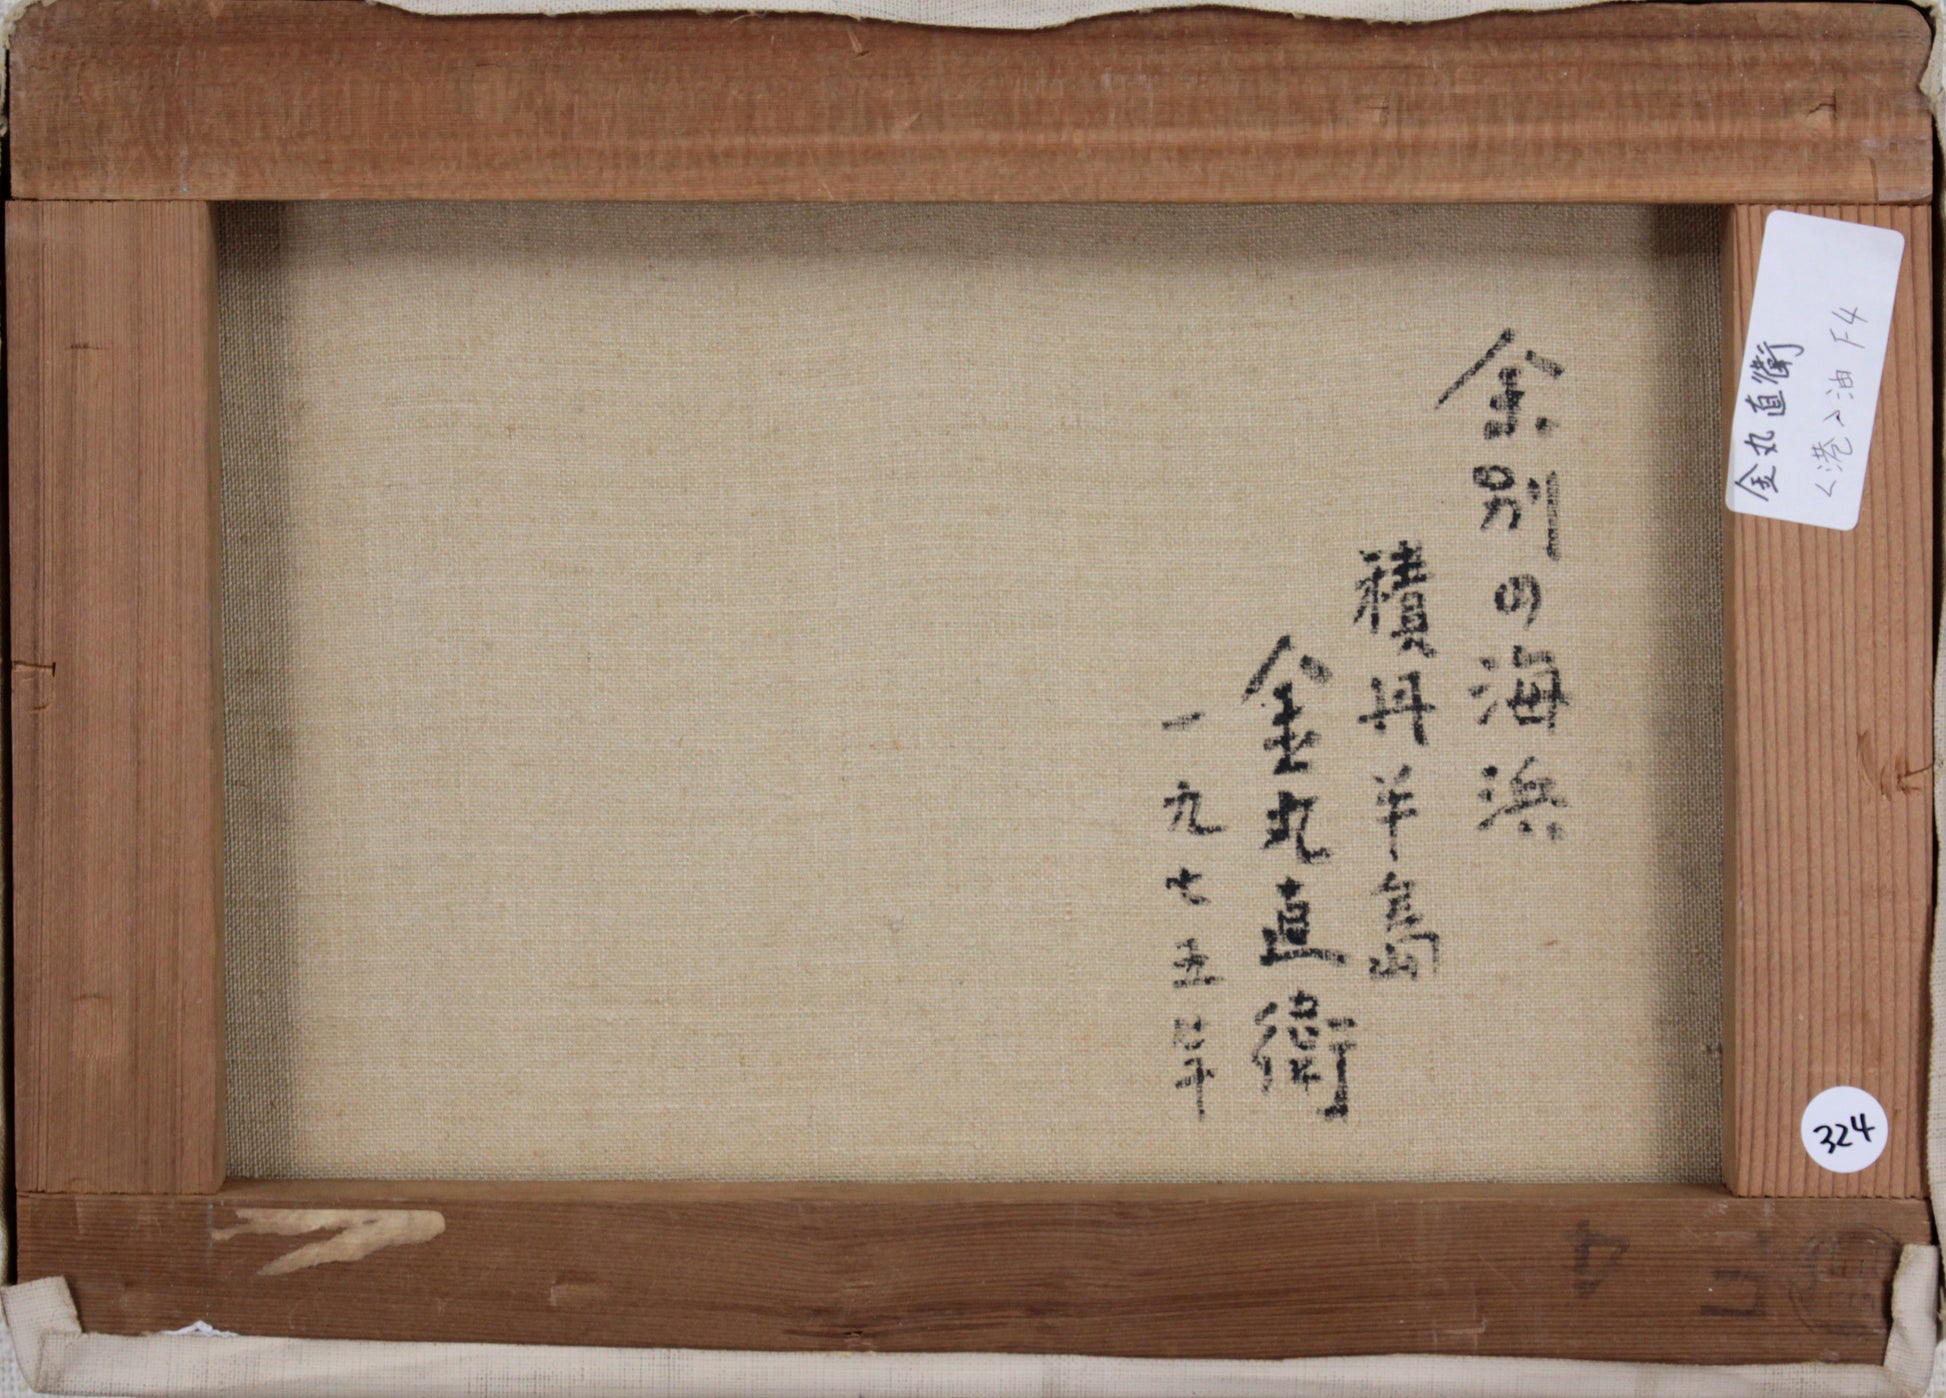 余別の海浜
積丹半島
金丸直衛
一九七五年
金丸直衛
<港>油 F4
324
F
4